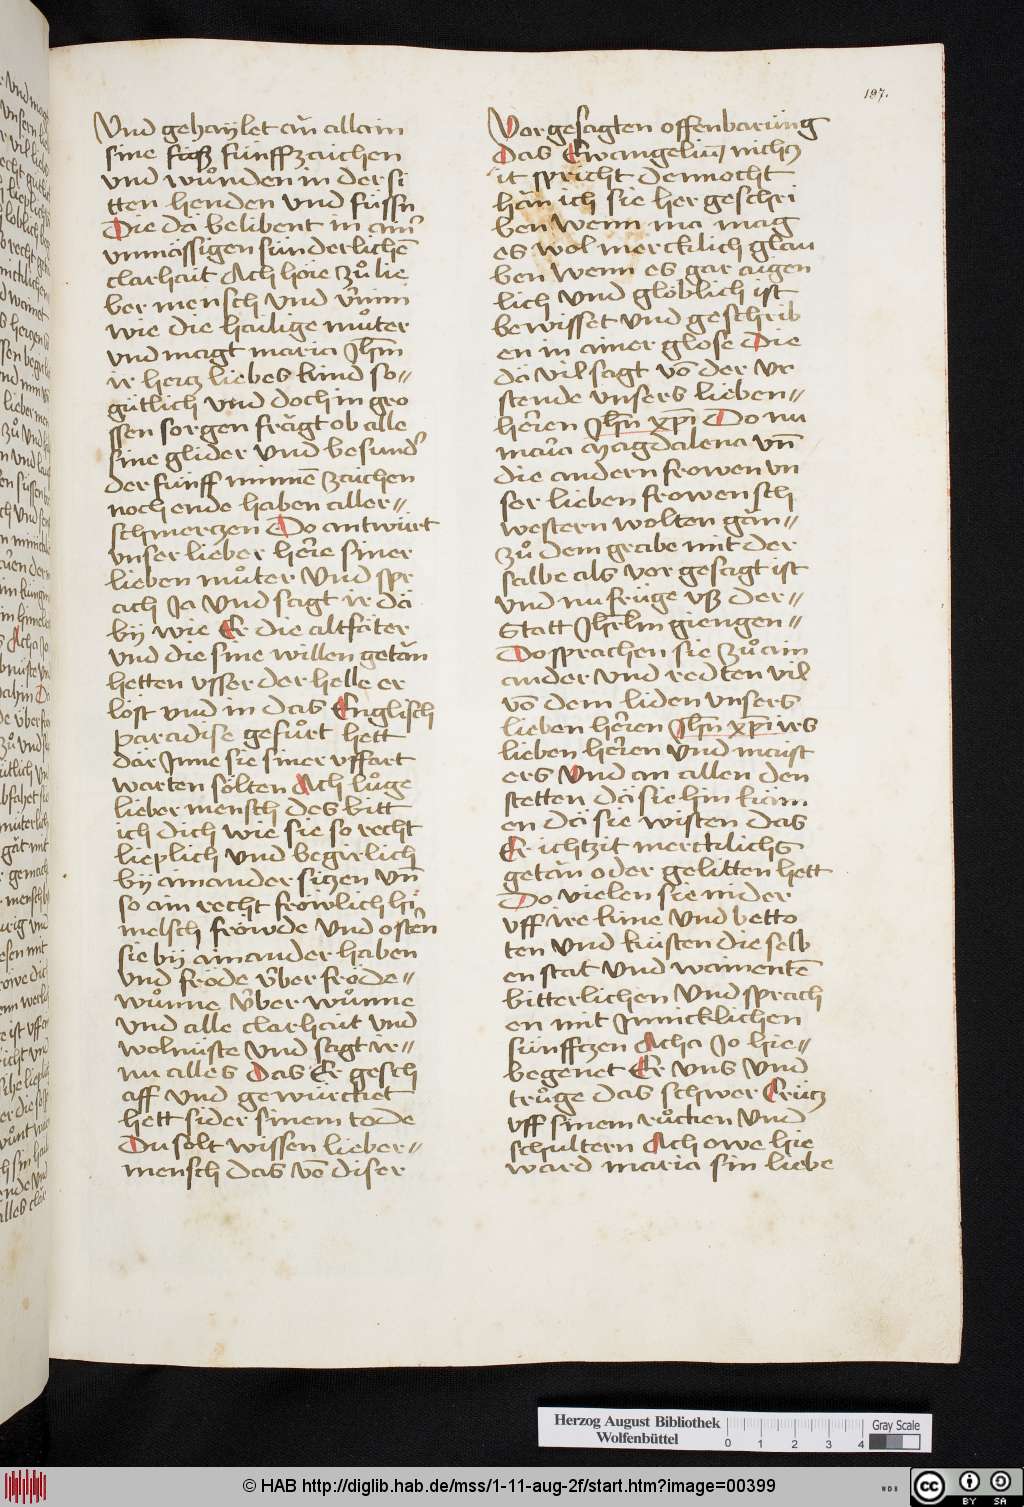 197.
Vnd gehaylet an allain
sine fünff zaichen
vnd wůnden in der si
tten henden vnd füssn
Die da belibent in ain̄
vnmässigen sünderlichē
clarhait Ach hőre zů lie
ber mensch vnd v̄nim
wie die hailige můter
vnd magt maria Jhm̄
ir hertz liebes kind so-
gütlich vnd doch in gro
ssen sorgen frägt ob alle
sine glider vnd besund̾
der fünff minnē zaichen
noch ende haben aller-
schmerczen Do antwürt
vnser lieber here siner
lieben můter Vnd spr
ach Ja vnd sagt ir dä
bÿ wie Er die altfäter
vnd die sine willen getän
hetten vsser der helle er
löst vnd in das Englisch
paradise gefůrt hett
där Jnne sie siner vffart
warten sölten Ach lůge
lieber mensch des bitt
ich dich wie sie so recht
lieplich vnd begirlich
bÿ ainander siczen vn̄
so ain recht frőwlich hi
melsch frőwde vnd ostern
sie bÿ ainander haben
vnd frőde v̄ber frőde-
wůnne v̄ber wůnne
vnd alle clarhait vnd
wolnüste vnd sagt ir-
nu alles Das Er gesch
aff vnd gewürcket
hett sider sinem tode
Du solt wissen lieber-
mensch das vō diser
Vorgesagten offenbarüng
Das Ewangeliū nichcz
it spricht dennocht
hān ich sie her geschri
ben Wenn ma mag
es wol mercklich glau
ben Wenn es gar aigen
lich vnd glőblich ist
bewisset vnd geschrib
en in ainer glose Die
dä vil sagt vō der vr
stende vnsers lieben-
herren Jhn̄ xp̄i Do nu
maria Magdalena vn̄
die andern frowen vn
ser lieben frowen sch
western wolten gän-
zů dem grabe mit der
salbe als vor gesagt ist
vnd nu früge vß der-
Statt Jhrlm̄ giengen-
Do sprachen sie zů ain
ander vnd redten vil
vō dem liden vnsers
lieben herren Jhn̄ xp̄i irs
lieben herren vnd maist
ers Vnd an allen den
stetten dä sie hin käm
en dä sie wisten das
Er ichtzit mercklichs
getän oder gelitten hett
Do vielen sie nider
vff ire knie vnd betto
ten vnd küsten die selb
en stat vnd waintentē
bitterlichen vnd sprach
en mit Jnnicklichen
sünfftzen Acha Jo hie-
begenet Er vns vnd
trůge das schwer Crücz
vff sinem růcken vnd
schultern Ach owe hie
ward maria sin liebe
Herzog August Bibliothek
Wolfenbüttel
0 1 2 3 4
Gray Scale
© HAB http://diglib.hab.de/mss/1-11-aug-2f/start.htm?image=00399
WDB
cc BY SA